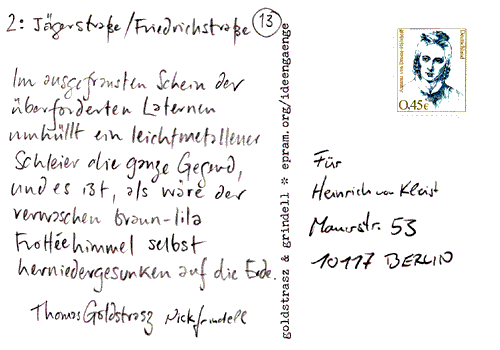 2: Jägerstraße/Friedrichstraße 13
Im ausgefransten Schein der
überforderten Laternen
umhüllt ein leichtmetallener
Schleier die ganze Gegend,
und es ist, als wäre der
verwaschen braun-lila
Frottéehimmel selbst
herniedergesunken auf die Erde.
Thomas Goldstrasz Nick Grindell
goldstrasz & grindell * epram.org/ideengaenge
Deutschland
0,45€
Für
Heinrich von Kleist
Mauerstr. 53
10117 BERLIN